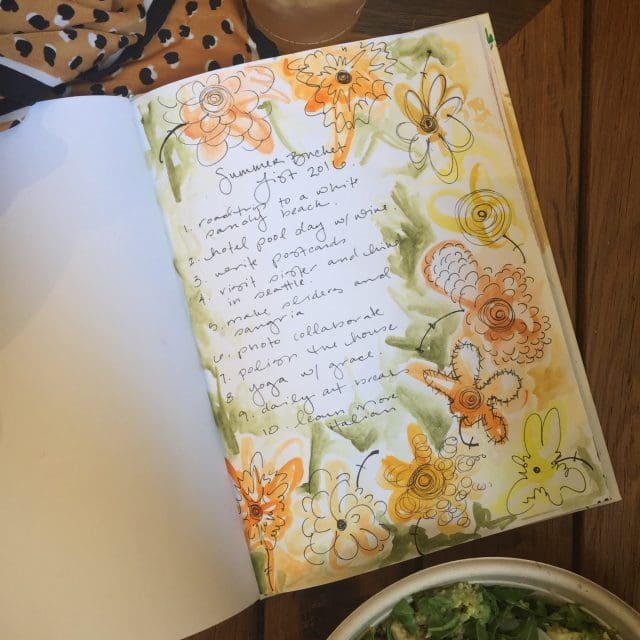 Summer Bucket
List 2016.
1. roadtrip to a white
sandy beach.
2. hotel pool day w/ wine
3. write postcards
4. visit sister and
in seattle.
5. make sliders and
sangria
6. photo collaborate
7. polish the house
8. yoga w/ grace.
9. daily art break
10. learn more
italian